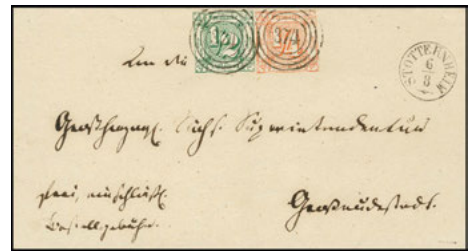 374
STOTTERNHEIM
6
8
An die
Großherzogl. Sächs. Superintendentur
frei, einschließl.
Bestellgebühr.
Großrudestedt.